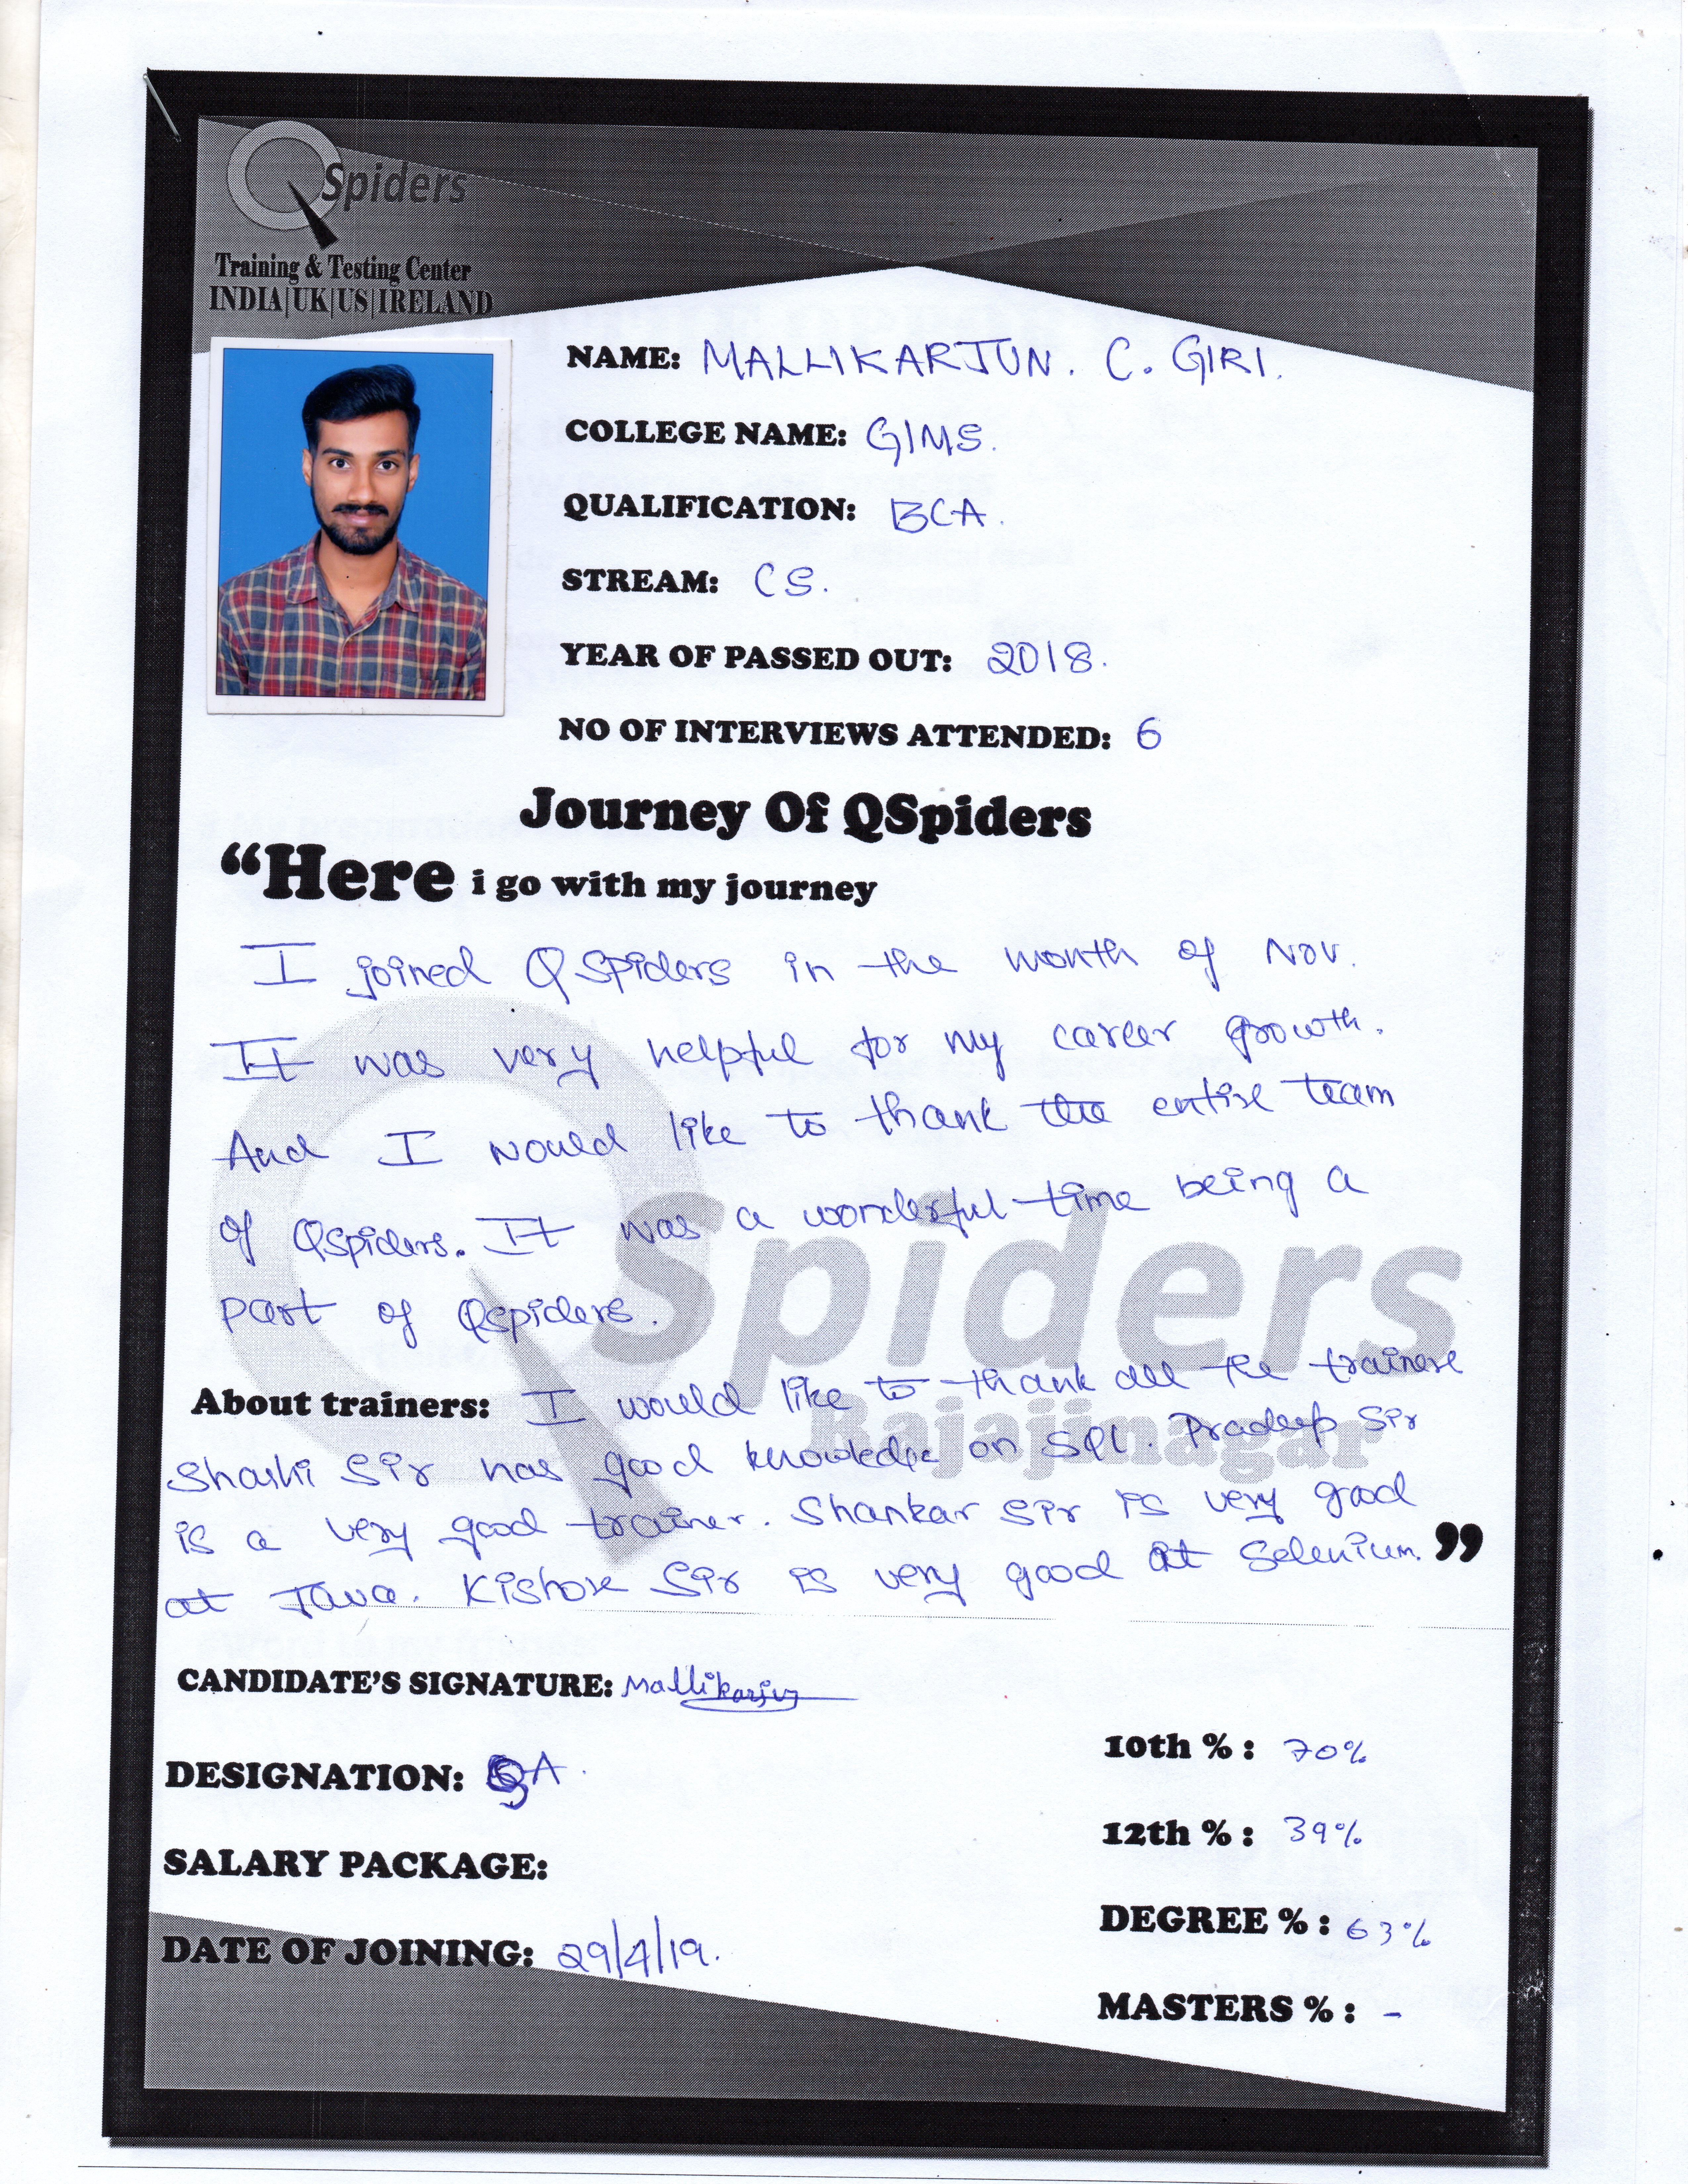 QSpiders
Training & Testing Center
INDIA|UK|US|IRELAND
NAME: MALLIKARJUN. C. GIRI.
COLLEGE NAME: GIMS.
QUALIFICATION: BCA.
STREAM: CS.
YEAR OF PASSED OUT: 2018.
NO OF INTERVIEWS ATTENDED: 6
Journey Of QSpiders
“Here i go with my journey
I joined QSpiders in the month of Nov.
It was very helpful for my career growth.
And I would like to thank the entire team
of QSpiders. It was a wonderful time being a
part of Qspiders.
QSpiders
Rajajinagar
About trainers: I would like to thank all the trainers
Shashi Sir has good knowledge on SQL. Pradeep Sir
is a very good trainer. Shankar Sir is very good
at Java. Kishore Sir is very good at Selenium.”
CANDIDATE'S SIGNATURE: Mallikarjun
DESIGNATION: QA.
SALARY PACKAGE:
DATE OF JOINING: 29/4/19.
10th % : 70%
12th % : 39%
DEGREE % : 63%
MASTERS % : -